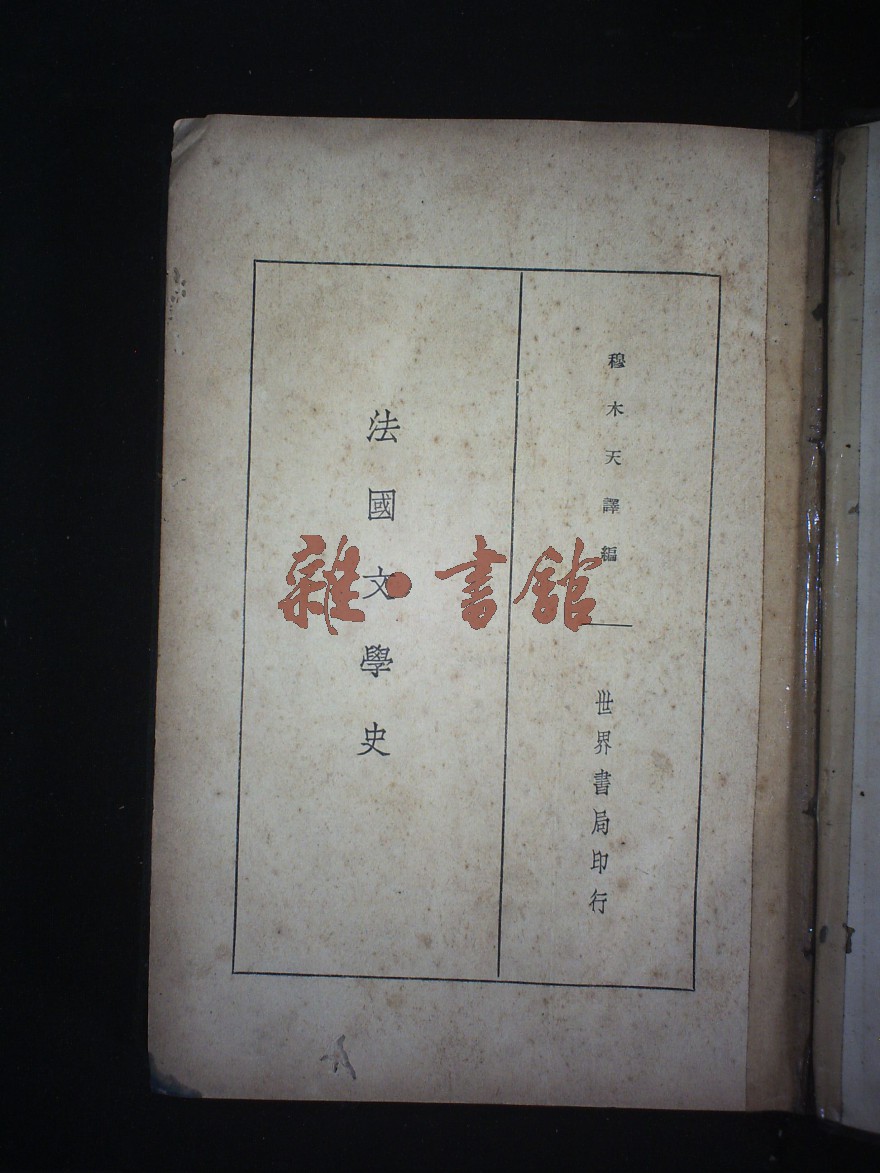 穆木天譯編
世界書局印行
法國文學史
雜·書館